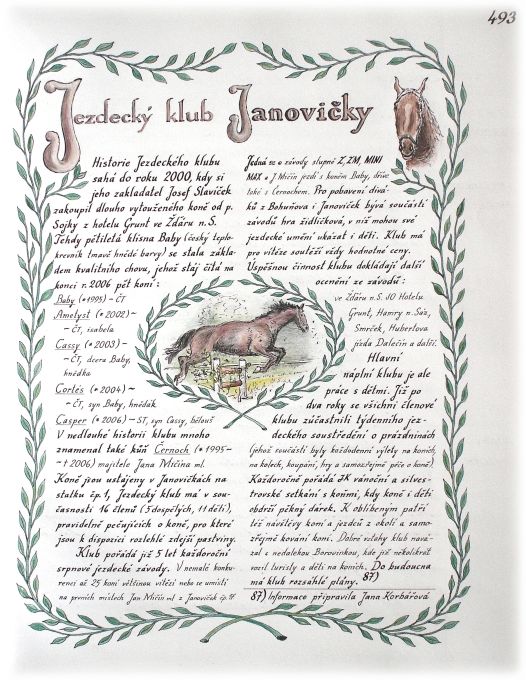 493
Jezdecký klub Janovičky
Historie Jezdeckého klubu
sahá do roku 2000, kdy si
jeho zakladatel Josef Slavíček
zakoupil dlouho vytouženého koně od p.
Sojky z hotelu Grunt ve Žďáru n.S.
Tehdy pětiletá klisna Baby (český teplo-
krevník tmavě hnědé barvy) se stala zákla-
dem kvalitního chovu, jehož stáj čítá na
konci r. 2006 pět koní:
Baby (*1995) – ČT
Ametyst (*2002) ~
– ČT, isabela
Cassy (*2003) ~
– ČT, dcera Baby,
hnědka
Cortés (*2004) ~
– ČT, syn Baby, hnědák
Casper (*2006) – ST, syn Cassy, bělouš
V nedlouhé historii klubu mnoho
znamenal také kůň Černoch (*1995–
– †2006) majitele Jana Mičína ml.
Koně jsou ustájeny v Janovičkách na
statku čp.1, Jezdecký klub má v sou-
časnosti 16 členů (5 dospělých, 11 dětí),
pravidelně pečujících o koně, pro které
jsou k dispozici rozlehlé zdejší pastviny.
Klub pořádá již 5 let každoroční
srpnové jezdecké závody. V nemalé konku-
renci až 25 koní většinou vítězí nebo se umístí
na prvních místech Jan Mičín ml. z Janoviček čp.
Jedná se o závody stupně Z, ZM, MINI
MAX a J. Mičín jezdí s koněm Baby, dříve
také s Černochem. Pro pobavení divá-
ků z Bohuňova i Janoviček bývá součástí
závodů hra židličková, v níž mohou své
jezdecké umění ukázat i děti. Klub má
pro vítěze soutěží vždy hodnotné ceny.
Úspěšnou činnost klubu dokládají další
ocenění ze závodů:
ve Žďáru n.S. JO Hotelu
Grunt, Hamry n. Sáz.,
Smrček, Hubertova
jízda Dalečín a další.
Hlavní
náplní klubu je ale
práce s dětmi. Již po
dva roky se všichni členové
klubu zúčastnili týdenního jez-
deckého soustředění o prázdninách
(jehož součástí byly každodenní výlety na koních,
na kolech, koupání, hry a samozřejmě péče o koně).
Každoročně pořádá JK vánoční a silves-
trovské setkání s koňmi, kdy koně i děti
obdrží pěkný dárek. K oblíbeným patří
též návštěvy koní a jezdců z okolí a samo-
zřejmě kování koní. Dobré vztahy klub navá-
zal s nedalekou Borovinkou, kde již několikrát
vozil turisty a děti na koních. Do budoucna
má klub rozsáhlé plány. 87)
87) Informace připravila Jana Korbářová